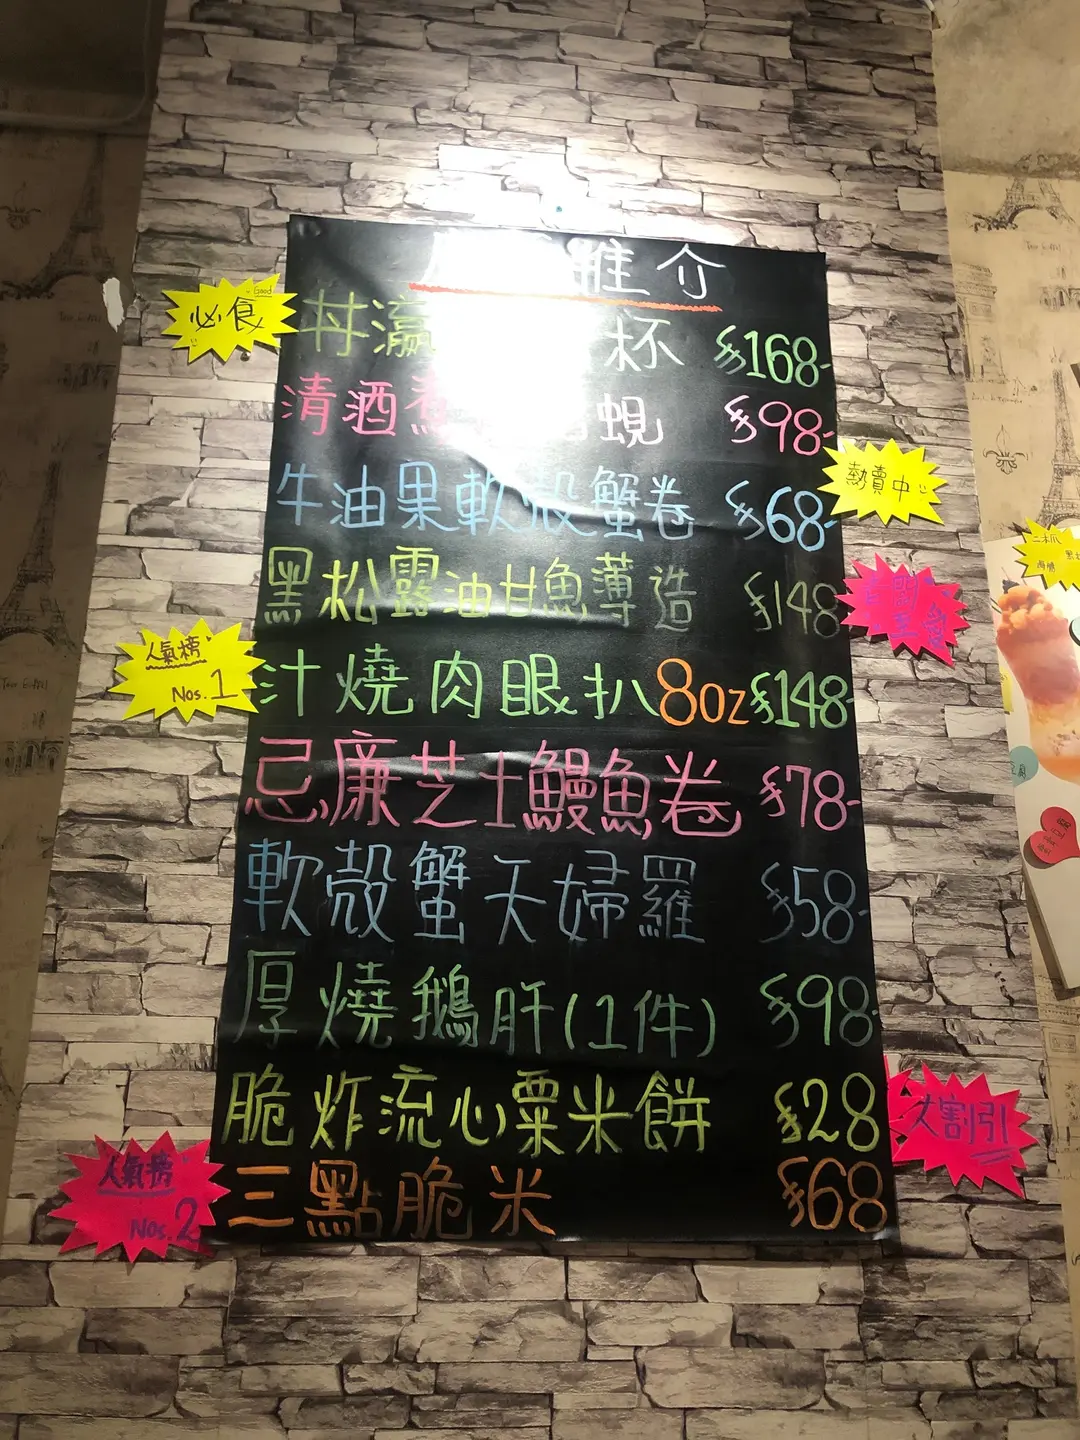 推介
必食
Good
丼瀛 杯 $168-
清酒煮 蜆 $98-
牛油果軟殼蟹卷 $68-
熱賣中
黑松露油甘魚薄造 $148
人氣榜
Nos.1
汁燒肉眼扒8oz $148-
忌廉芝士鰻魚卷 $78-
軟殼蟹天婦羅 $58-
厚燒鵝肝(1件) $98-
脆炸流心粟米餅 $28
大割引
人氣榜
Nos.2
三點脆米 $68